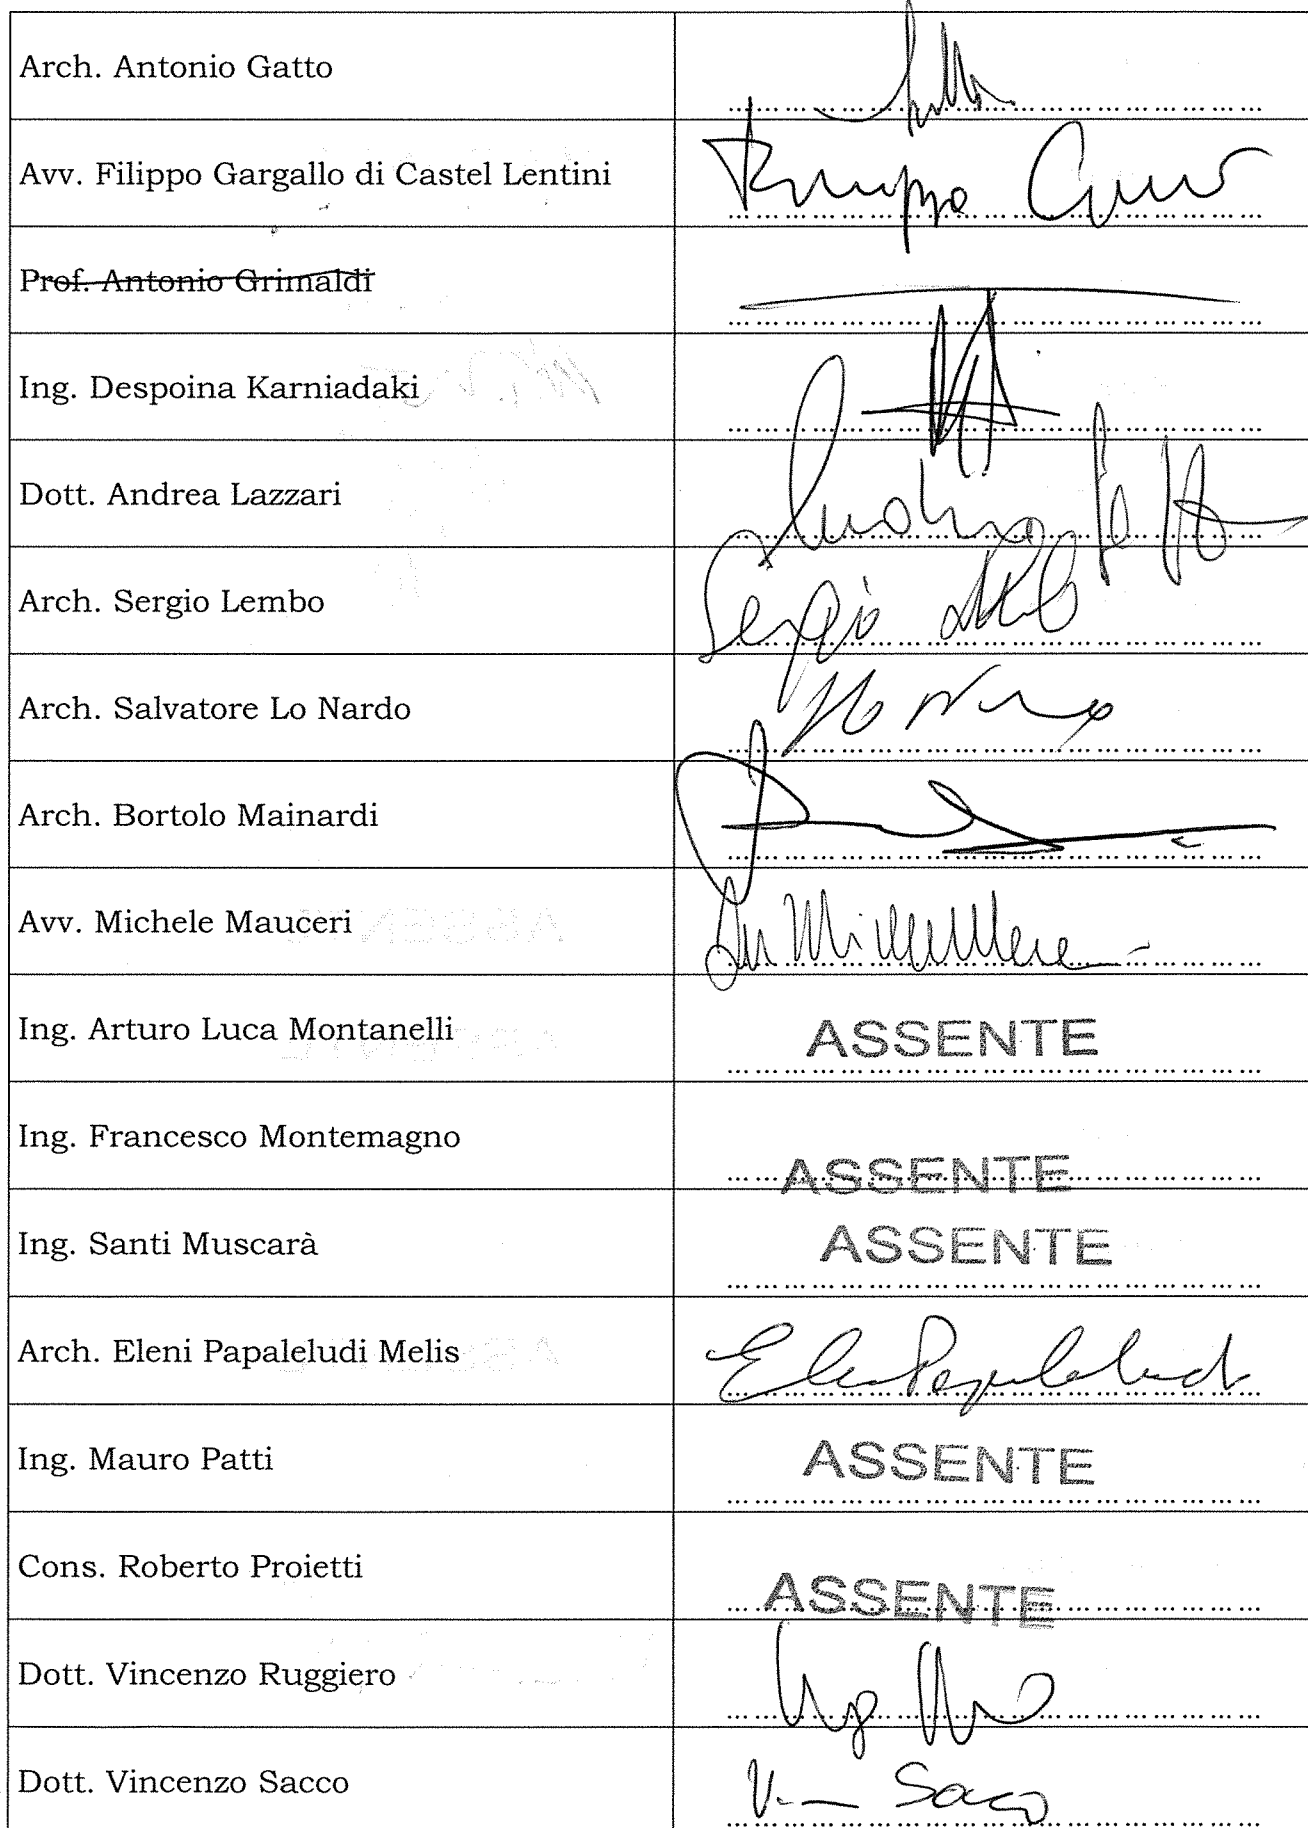 Arch. Antonio Gatto
Avv. Filippo Gargallo di Castel Lentini
Prof. Antonio Grimaldi
Ing. Despoina Karniadaki
Dott. Andrea Lazzari
Arch. Sergio Lembo
Sergio
Arch. Salvatore Lo Nardo
Arch. Bortolo Mainardi
Avv. Michele Mauceri
Ing. Arturo Luca Montanelli
ASSENTE
Ing. Francesco Montemagno
ASSENTE
Ing. Santi Muscarà
ASSENTE
Arch. Eleni Papaleludi Melis
Ing. Mauro Patti
ASSENTE
Cons. Roberto Proietti
ASSENTE
Dott. Vincenzo Ruggiero
Dott. Vincenzo Sacco
Sacco